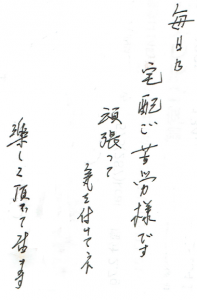 毎日
宅配ご苦労様です
頑張って
気を付けてネ
楽しく頂いて居ます